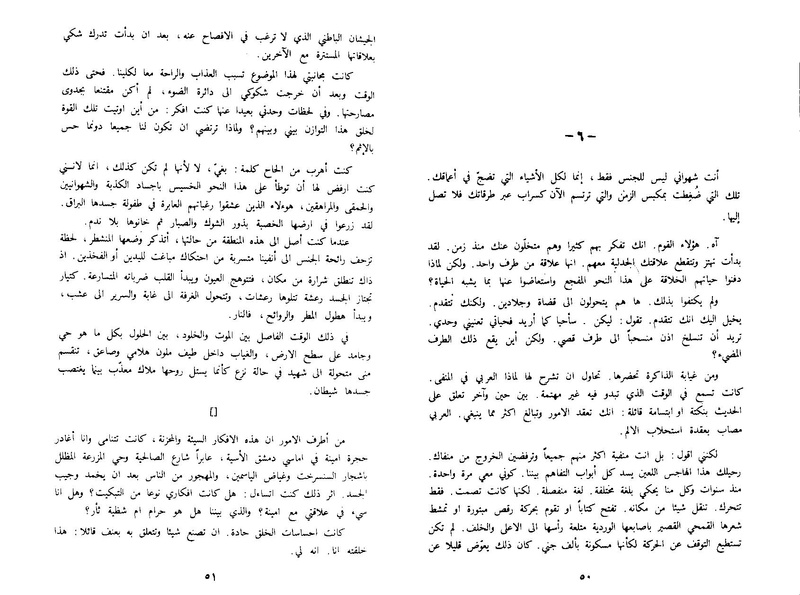 -٦-
أنت شهواني ليس للجنس فقط، إنما لكل الأشياء التي تضجّ في أعماقك.
تلك التي ضُغِطت بمكبس الزمن والتي ترتسم الآن كسراب عبر طرقاتك فلا تصل
إليها.
آه. هؤلاء القوم. انك تفكر بهم كثيرا وهم متخلّون عنك منذ زمن. لقد
بدأت تهتز وتتقطع علاقتك الجدلية معهم. انها علاقة من طرف واحد. ولكن لماذا
دفنوا حياتهم الخلاقة على هذا النحو المفجع واستعاضوا عنها بما يشبه الحياة؟
ولم يكتفوا بذلك. ها هم يتحولون الى قضاة وجلادين. ولكنك تتقدم.
يخيل اليك انك تتقدم. تقول: ليكن. سأحيا كما أريد فحياتي تعنيني وحدي.
تريد أن تنسلخ اذن منسحباً الى طرف قصي. ولكن أين يقع ذلك الطرف
المضيء؟
ومن غيابة الذاكرة تحضرها. تحاول ان تشرح لها لماذا العربي في المنفى.
كانت تسمع في الوقت الذي تبدو فيه غير مهتمة. بين حين وآخر تعلق على
الحديث بنكتة او ابتسامة قائلة: انك تعقد الامور وتبالغ اكثر مما ينبغي. العربي
مصاب بعقدة استحلاب الالم.
لكنني اقول: بل انت منفية اكثر منهم جميعاً وترفضين الخروج من منفاك.
رحيلك هذا الهاجس اللعين يسد كل أبواب التفاهم بيننا. كوني معي مرة واحدة.
منذ سنوات وكل منا يحكي بلغة مختلفة. لغة منفصلة. لكنها كانت تصمت. فقط
تتحرك. تنقل شيئا من مكانه. تفتح كتاباً او تقوم بحركة رقص مبتورة او تمشط
شعرها القمحي القصير باصابعها الوردية مثلعة رأسها الى الاعلى والخلف. لم تكن
تستطيع التوقف عن الحركة لكأنها مسكونة بألف جني. كان ذلك يعوّض قليلا عن
٥٠
الجيشان الباطني الذي لا ترغب في الافصاح عنه، بعد ان بدأت تدرك شكي
بعلاقاتها المستترة مع الآخرين.
كانت مجانبتي لهذا الموضوع تسبب العذاب والراحة معا لكلينا. فحتى ذلك
الوقت وبعد أن خرجت شكوكي الى دائرة الضوء، لم أكن مقتنعا بجدوى
مصارحتها. وفي لحظات وحدتي بعيدا عنها كنت افكر: من أين اوتيت تلك القوة
لخلق هذا التوازن بيني وبينهم؟ ولماذا ترتضي ان تكون لنا جميعا دونما حس
بالإثم؟
كنت أهرب من الحاح كلمة: بغيّ، لا لأنها لم تكن كذلك، انما لانني
كنت ارفض لها أن توطأ على هذا النحو الخسيس باجساد الكذبة والشهوانيين
والحمقى والمراهقين، هوءلاء الذين عشقوا رغباتهم العابرة في طفولة جسدها البراق.
لقد زرعوا في ارضها الخصبة بذور الشوك والصبار ثم خانوها بلا ندم.
عندما كنت أصل الى هذه المنطقة من حالتها، أتذكر وضعها المنشطر، لحظة
تزحف رائحة الجنس الى أنفينا متسربة من احتكاك مباغت لليدين أو الفخذين. اذ
ذاك تنطلق شرارة من مكان، فتتوهج العيون ويبدأ القلب ضرباته المتسارعة. كتيار
تجتاز الجسد رعشة تتلوها رعشات، وتتحول الغرفة الى غابة والسرير الى عشب،
ويبدأ هطول المطر والروائح، فالنار.
في ذلك الوقت الفاصل بين الموت والخلود، بين الحلول بكل ما هو حي
وجامد على سطح الارض، والغياب داخل طيف ملون هلامي وصاعق، تنقسم
منى متحولة الى شهيد في حالة نزع كأنما يستل روحها ملاك معذّب بينما يغتصب
جسدها شيطان.
[]
من أطرف الامور ان هذه الافكار السيئة والمحزنة، كانت تتنامى وانا أغادر
حجرة امينة في اماسي دمشق الآسية، عابراً شارع الصالحية وحي المزرعة المظلل
باشجار السنسرخت وغياض الياسمين، والمهجور من الناس بعد ان يخمد وجيب
الجسد. اثر ذلك كنت اتساءل: هل كانت افكاري نوعا من التبكيت؟ وهل انا
سيء في علاقتي مع امينة؟ والذي بيننا هل هو حرام ام شظية ثأر؟
كانت احساسات الخلق حادة. ان تصنع شيئا وتتعلق به بعنف قائلا: هذا
خلقته انا. انه لي.
٥١